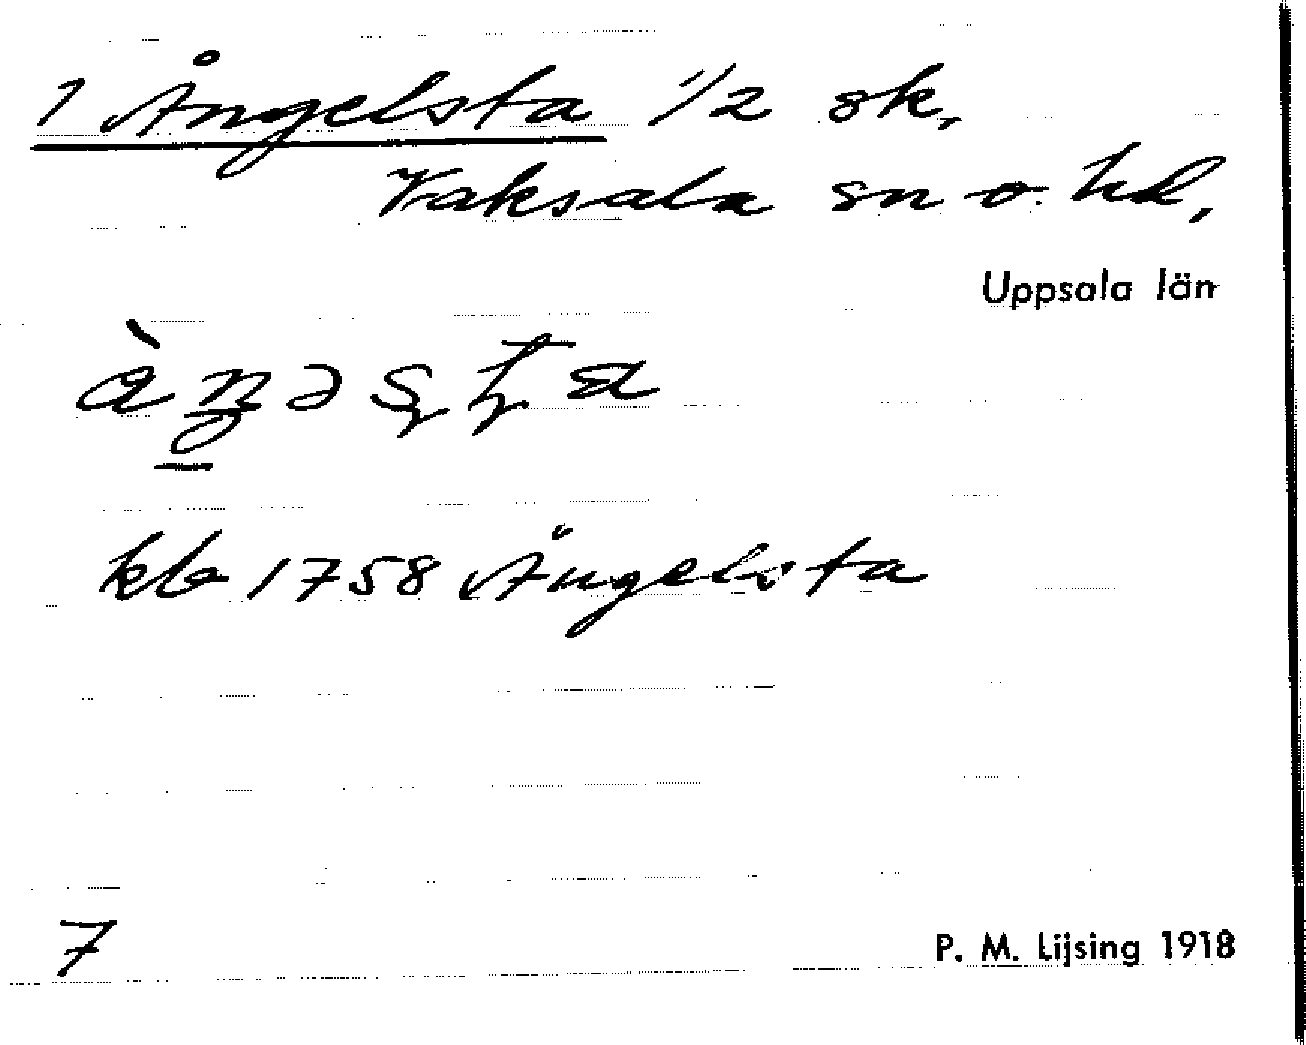 1 Ångelsta 1/2 sk,
Vaksala sn o. hd,
Uppsala län
kb 1758 Ångelsta
7
P. M. Lijsing 1918